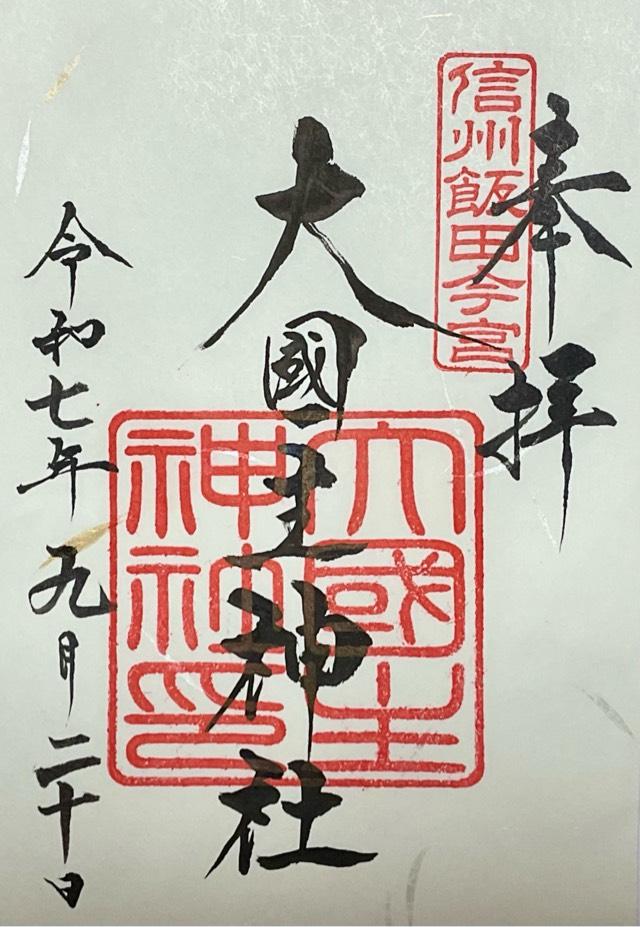 奉拝
信州飯田今宮
大國主神社
大國主
神社印
令和七年九月二十日